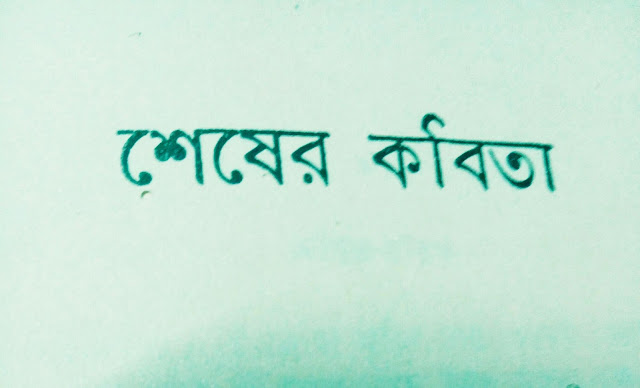 শেষের কবিতা